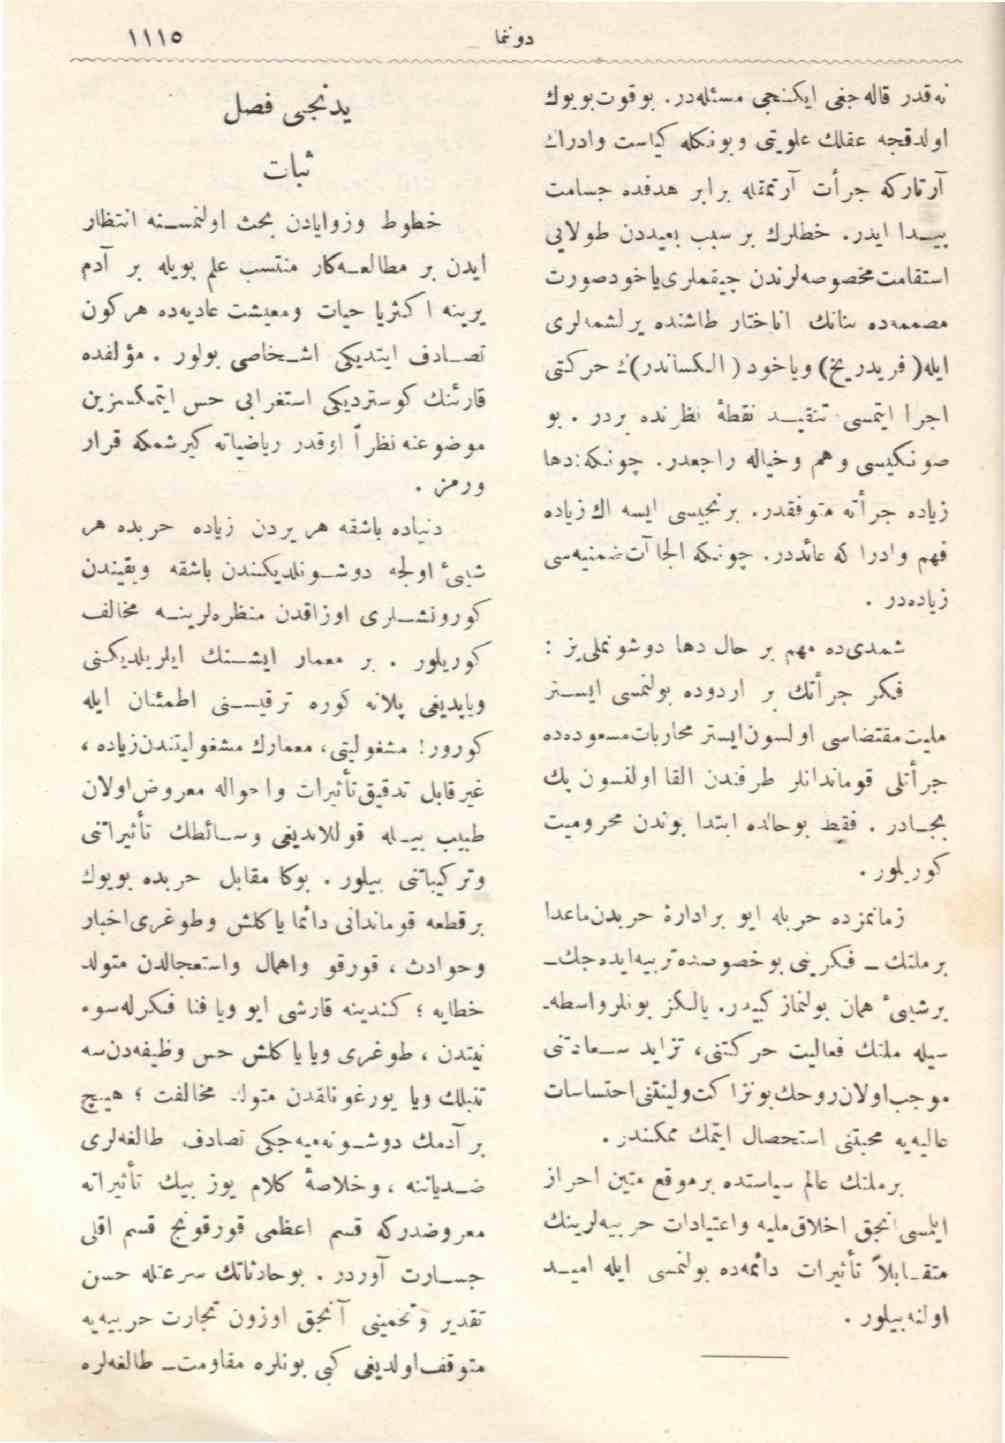 دونما
١١١٥
نه‌قدر قاله‌جغی ایكنجی مسئله‌در. بو قوت بویوك
اولدقجه عقلك علویتی وبونكله كیاست وادراك
آرتاركه جرأت آرتمقله برابر هدفده جسامت
پیـدا ایدر. خطلرك بر سبب بعیددن طولایی
استقامت مخصوصه‌لرندن چیقملری یاخود صورت
مصممه‌ده بنانك اناختار طاشنده یرلشمه‌لری
ایله (فریدریخ) ویاخود (الكساندر)ك حركتی
اجرا ایتمسی تنقیـد نقطۀ نظرنده بردر. بو
صونكیسی وهم وخیاله راجعدر. چونكه: دها
زیاده جرأته متوفقدر. برنجیسی ایسه اك زیاده
فهم وادراكه عائددر. چونكه الجاآت ضمنیه‌سی
زیاده‌در .
شمدی‌ده مهم بر حال دها دوشونملی‌یز :
فكر جرأتك بر اردوده بولنمسی ایستر
ملیت مقتضاسی اولسون ایستر محاربات مسعوده‌ده
جرأتلی قوماندانلر طرفندن القا اولنسون پك
بجـادر . فقط بوحالده ابتدا بوندن محرومیت
كوریلور.
زمانمزده حربله ایو برادارۀ حربدن ماعدا
برملتك ـ فكرینی بو خصوصده تربیه‌ایده‌جك ـ
برشیئ همان بولنماز كبیدر. یالكز بونلر واسطه‌ـ
سیله ملتك فعالیت حركتنی، تزاید سـعادتنی
موجب اولان روحك بو نزاكت ولینتنی احتساسات
عالیه‌یه محبتنی استحصال ایتمك ممكندر.
برملتك عالم سیاستده برموقع متین احراز
ایلمسی انجق اخلاق ملیه واعتیادات حربیه‌لرینك
متقـابلاً تأثیرات دائمه‌ده بولنمسی ایله امیـد
اولنه‌بیلور .
یدنجی فصل
ثبات
خطوط وزوایادن بحث اولنمسـنه انتظار
ایدن بر مطالعـه‌كار منتسب علم بویله بر آدم
یرینه اكثریا حیات ومعیشت عادیه‌ده هركون
تصـادف ایتدیكی اشـخاصی بولور . مؤلفده
قارئنك كوستردیكی استغرابی حس ایتمكسزین
موضوعنه نظراً اوقدر ریاضیاته كیرشمكه قرار
ورمز .
دنیاده باشقه هر یردن زیاده حربده هر
شیئ اولجه دوشـونلدیكندن باشقه وبقیندن
كورونشـلری اوزاقدن منظره‌لرینـه مخالف
كوریلور . بر معمار ایشـنك ایلریلدیكنی
ویاپدیغی پلانه كوره ترقیسـنی اطمئنان ایله
كورور! مشغولیتی، معمارك مشغولیتندن زیاده ،
غیرقابل تدقیق تأثیرات واحواله معروض اولان
طبیب بیـله قوللاندیغی وسـائطك تأثیراتنی
وتركیباتنی بیلور . بوكا مقابل حربده بویوك
برقطعه قوماندانی دائما یاكلش وطوغری اخبار
وحوادث ، قورقو واهمال واستعجالدن متولد
خطایه ؛ كندینه قارشی ایو ویا فنا فكرله سوء
نیتدن ، طوغری ویا یاكلش حس وظیفه‌دن سه
تنبللك ویا یورغونلقدن متولد مخالفت ؛ هیچ
بر آدمك دوشـونه‌میه‌جكی تصادف طالغه‌لری
ضـدیاتنه ، وخلاصۀ كلام یوز بیك تأثیراته
معروضدركه قسم اعظمی قورقونج قسم اقلی
جسـارت آوردر . بو حادثاتك سرعتله حسن
تقدیر وتخمینی آنجق اوزون تجارت حربیه‌یه
متوقف اولدیغی كبی بونلره مقاومت ـ طالغه‌لره